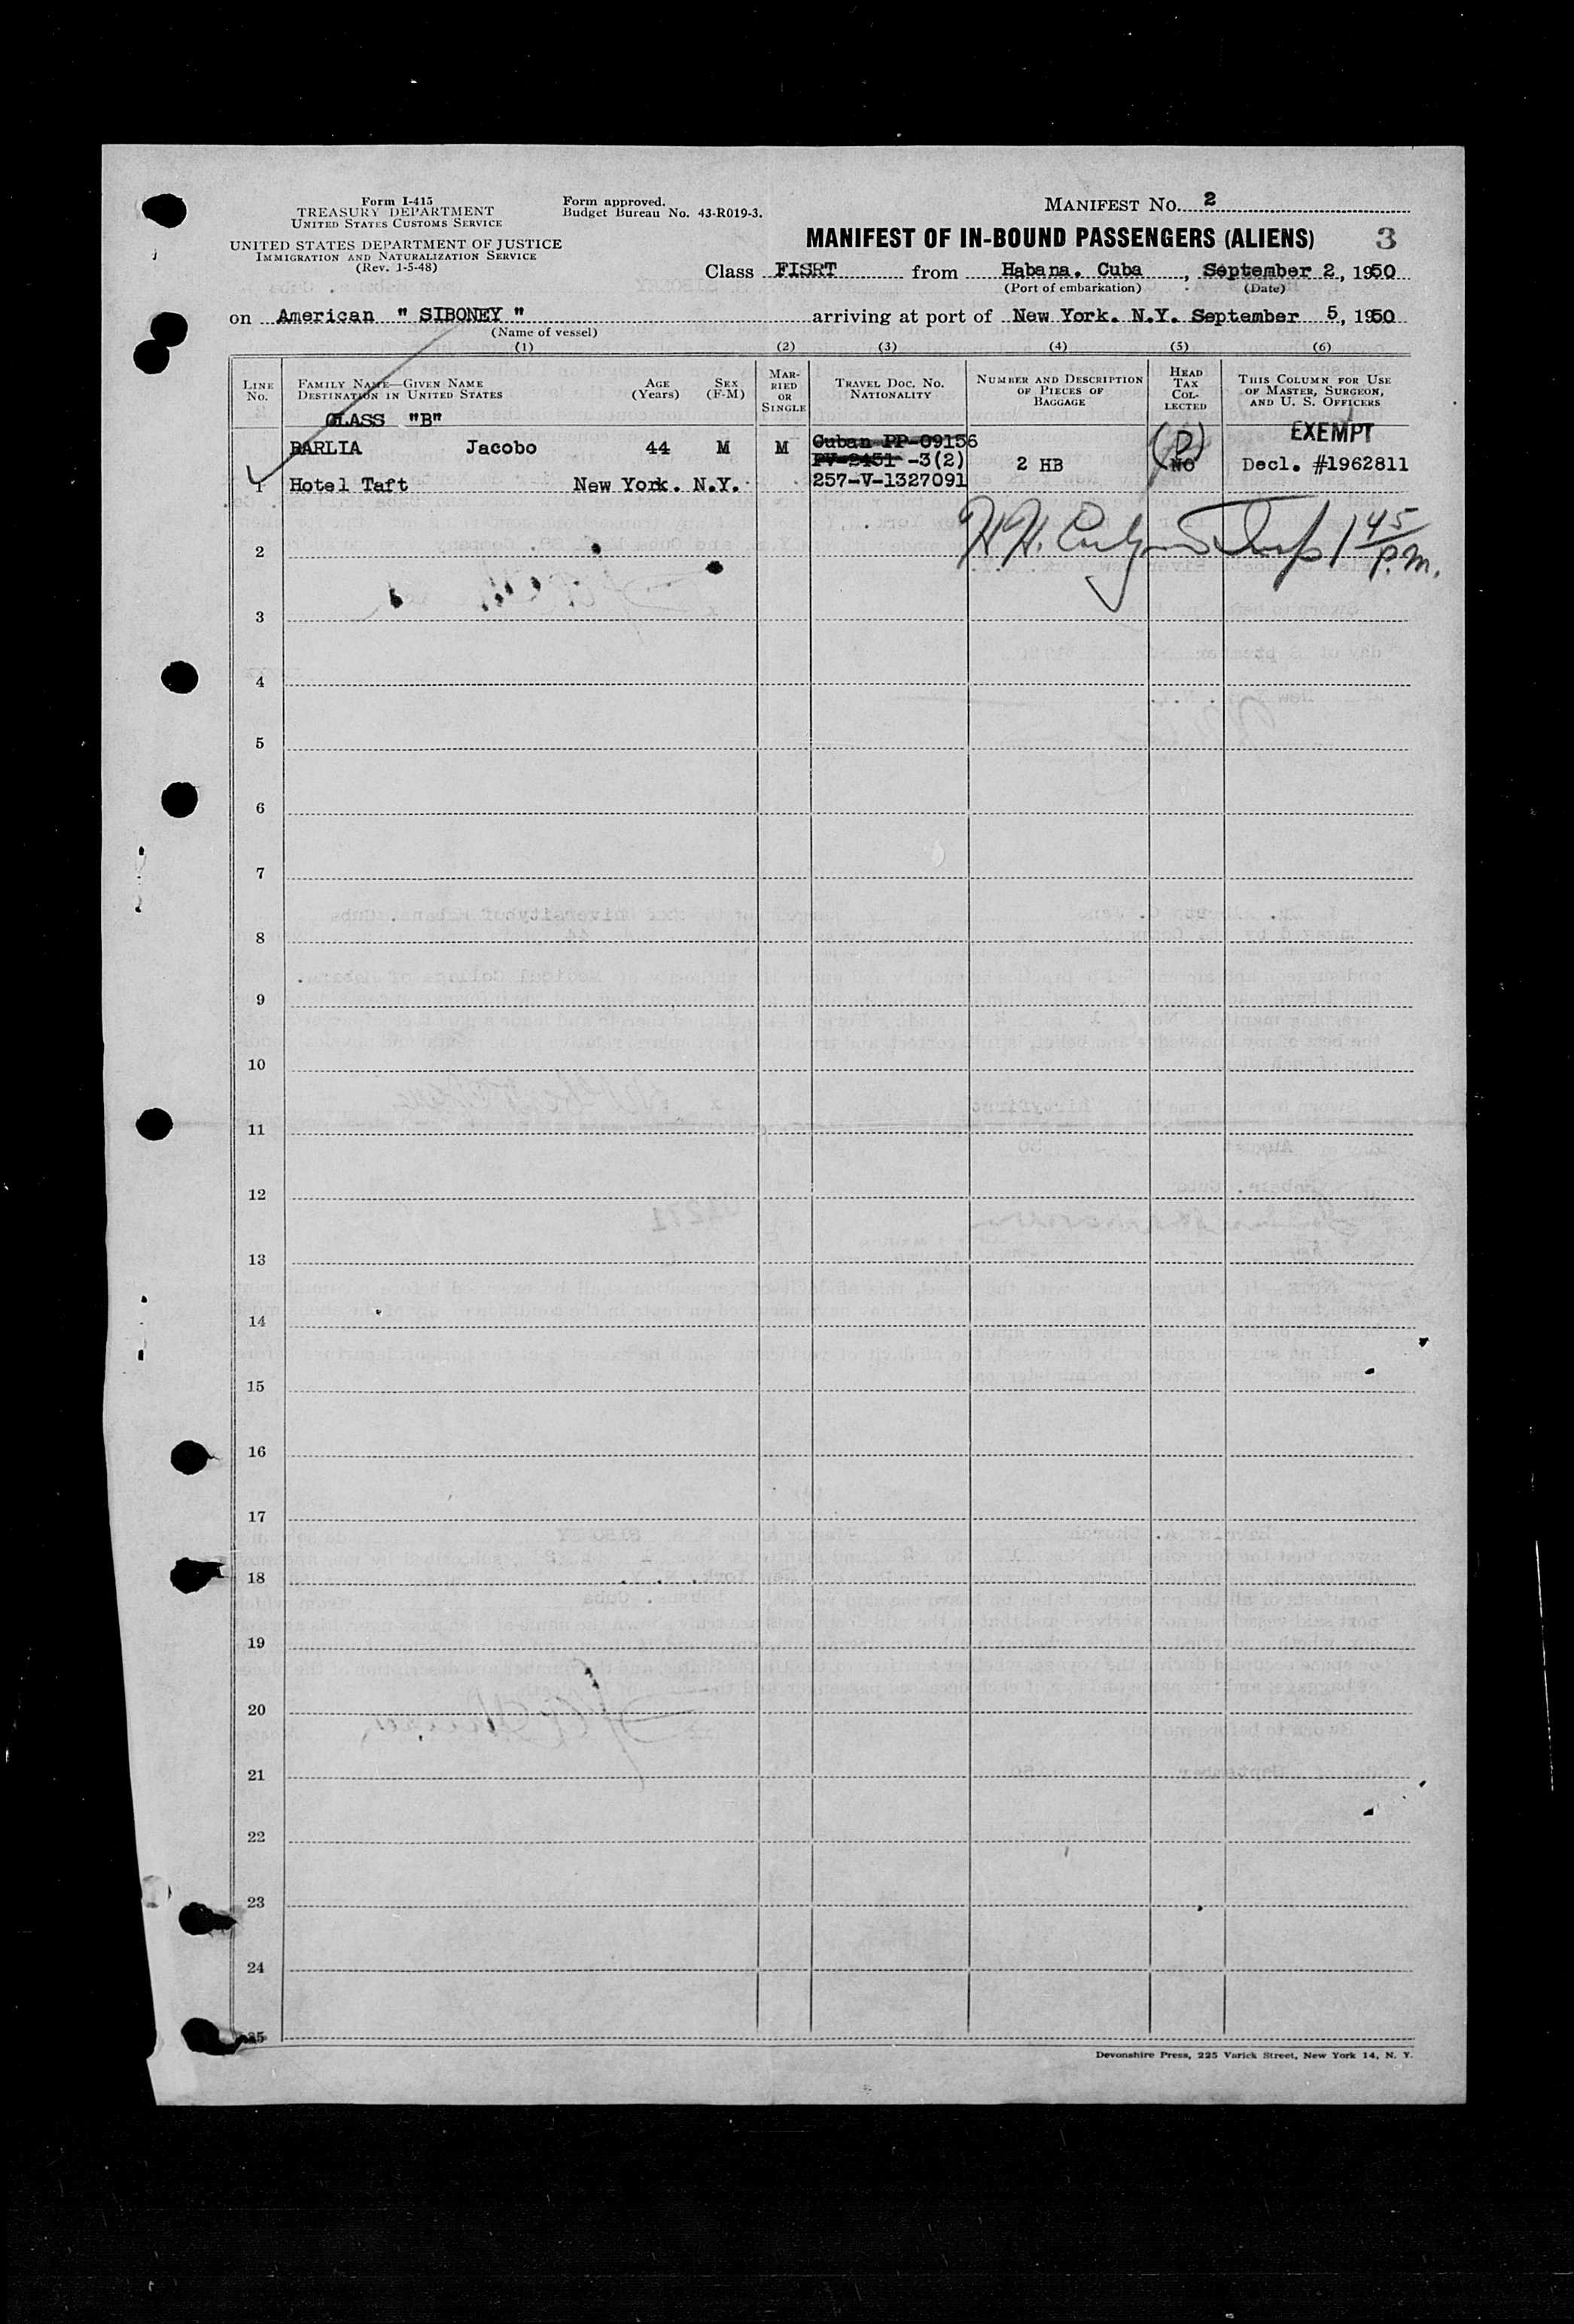 Form I-415
TREASURY DEPARTMENT
UNITED STATES CUSTOMS SERVICE
UNITED STATES DEPARTMENT OF JUSTICE
IMMIGRATION AND NATURALIZATION SERVICE
(Rev. 1-5-48)
Form approved.
Budget Bureau No. 43-R019-3.
MANIFEST NO. 2
MANIFEST OF IN-BOUND PASSENGERS (ALIENS) 3
Class FISRT from Habana. Cuba, September 2, 1950
(Port of embarkation) (Date)
on American " SIBONEY " arriving at port of New York. N.Y. September 5, 1950
(Name of vessel)
(1) (2) (3) (4) (5) (6)
LINE No.
FAMILY NAME—GIVEN NAME
DESTINATION IN UNITED STATES
AGE (Years)
SEX (F-M)
MARRIED OR SINGLE
TRAVEL DOC. NO.
NATIONALITY
NUMBER AND DESCRIPTION
OF PIECES OF
BAGGAGE
HEAD TAX COLLECTED
THIS COLUMN FOR USE
OF MASTER, SURGEON,
AND U. S. OFFICERS
CLASS "B"
EXEMPT
BARLIA Jacobo 44 M M Cuban PP-09156
PV-2451 -3(2) 2 HB (D) NO Decl. #1962811
1 Hotel Taft New York. N.Y. 257-V-1327091
H.H. 1 45 p.m.
2
3
4
5
6
7
8
9
10
11
12
13
14
15
16
17
18
19
20
21
22
23
24
25
Devonshire Press, 225 Varick Street, New York 14, N. Y.